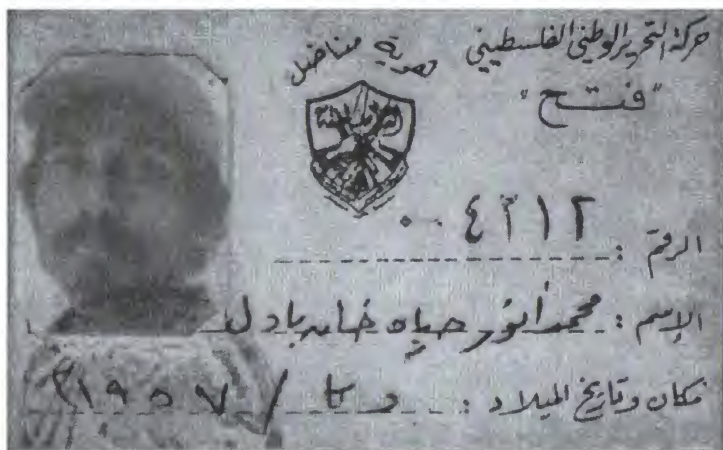 حركة التحرير الوطني الفلسطيني
"فتح"
هوية مناضل
الرقم :
الإسم : محمد أنور حياه خان بادل
مكان وتاريخ الميلاد : دكا / ١٩٥٧م